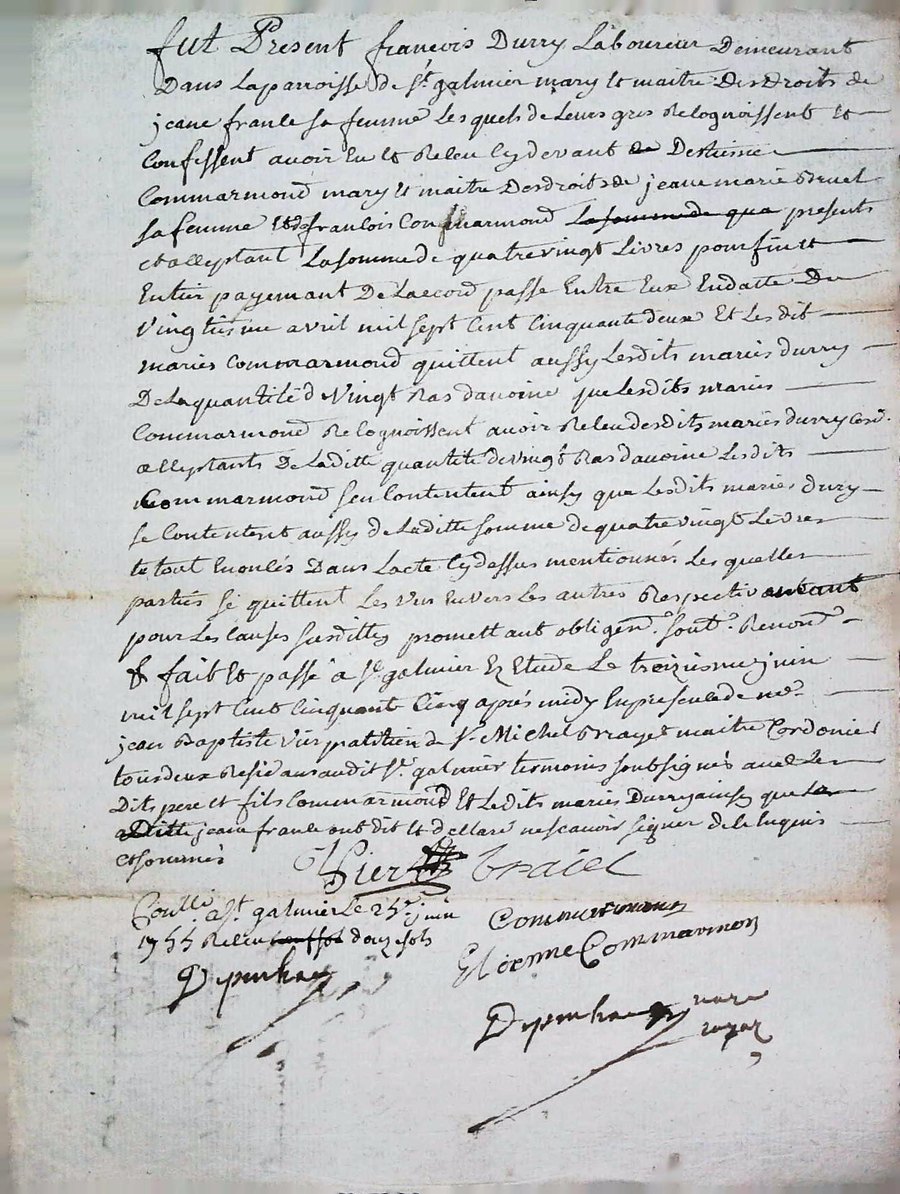 fut Present francois Durry Laboureur Demeurant
Dans Laparroisse de St. galmier mary et maitre Desdroits de
jeane franle sa femme Lesquels de Leurs gres Recognoissent et
Confessent avoir Eu et Receu Cydevant de Destienne
Commarmond mary et maitre Desdroits de jeane marie Bruel
sa femme francois Commarmond La somme de qua presents
et acceptant La somme de quatre vingt Livres pour fin et
Entier payemant De Laccord passe Entre Eux Endatte Du
Vingtiesme avril mil sept Cent Cinquante deux Et Lesdit
maries Commarmond quittent aussy Lesdits maries durry
De La quantité de Vingt Ras davoine que Lesdits maries
Commarmond Recognoissent avoir Receu desdits maries durry
acceptants De Laditte quantité de vingt Ras davoine Lesdits
Commarmond sen Contentent ainsy que Lesdits maries durry
se Contentent aussy de Laditte somme de quatre vingt Livres
le tout Enoncés Dans Lacte Cydessus mentionnés Les quelles
parties se quittent Les Uns Envers Les autres Respectivement
pour Les Causes susdittes promettant obligen. soub. Renonc.
fait et passé a St. galmier Ez Etude Le treiziesme juin
mil sept Cent Cinquant Cinq aprés midy En presence de me.
jean Baptiste Vier pratitien de Sr. Michel Brayet maitre Cordonier
tous deux Residans audit St. galmier temoins soubsignés avec Les
Dits pere et fils Commarmond Et Lesdits maries Durry ainsy que La
aditte jeane franle ont dit et declaré ne scavoir signer de ce Enquis
et sommés
Vier Braiel
Coullé a St. galmier Le 25e. juin
1755 Receu douze sols
Commarmond
Etienne Commarmon
Depunhac
Depunhac nore
royal